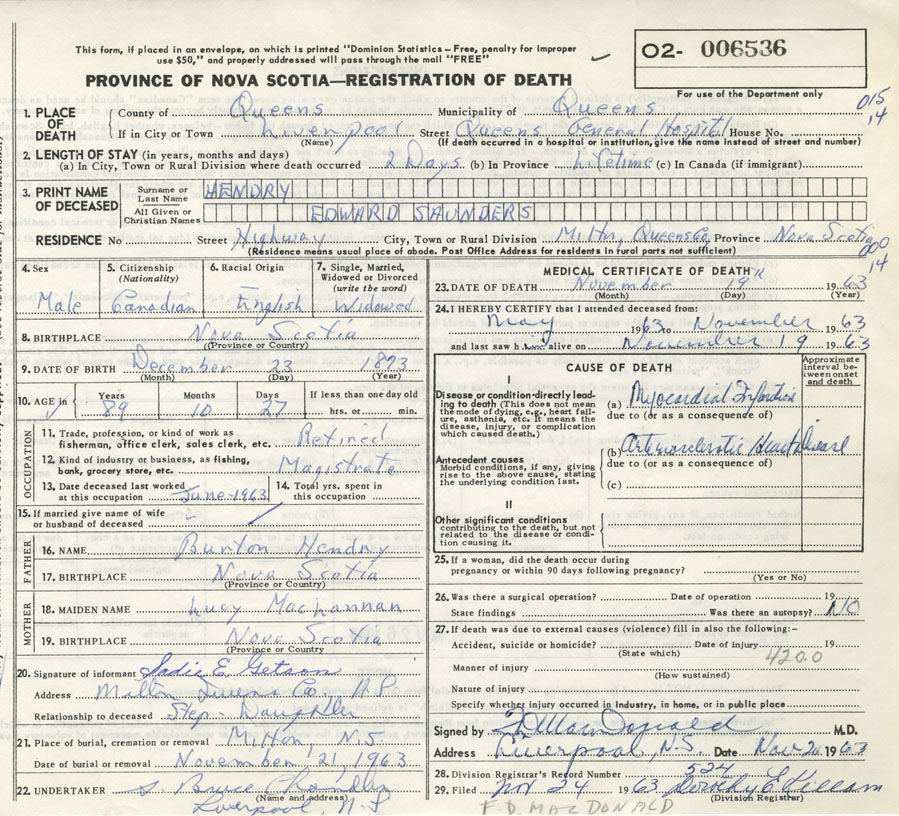 This form, if placed in an envelope, on which is printed "Dominion Statistics—Free, penalty for improper
use $50," and properly addressed will pass through the mail "FREE"
O2- 006536
PROVINCE OF NOVA SCOTIA—REGISTRATION OF DEATH
For use of the Department only
015
14
1. PLACE OF DEATH
County of Queens Municipality of Queens
If in City or Town Liverpool Street Queens General Hospital House No.
(Name) (If death occurred in a hospital or institution, give the name instead of street and number)
2. LENGTH OF STAY (in years, months and days)
(a) In City, Town or Rural Division where death occurred 2 Days (b) In Province Lifetime (c) In Canada (if immigrant)
3. PRINT NAME OF DECEASED
Surname or Last Name HENDRY
All Given or Christian Names EDWARD SAUNDERS
RESIDENCE No Street Highway City, Town or Rural Division Milton, Queens Co, Province Nova Scotia
(Residence means usual place of abode. Post Office Address for residents in rural parts not sufficient)
14
4. Sex Male
5. Citizenship (Nationality) Canadian
6. Racial Origin English
7. Single, Married, Widowed or Divorced (write the word) Widowed
8. BIRTHPLACE Nova Scotia
(Province or Country)
9. DATE OF BIRTH December 23 1873
(Month) (Day) (Year)
10. AGE in Years 89 Months 10 Days 27 If less than one day old hrs. or min.
OCCUPATION
11. Trade, profession, or kind of work as fisherman, office clerk, sales clerk, etc. Retired
12. Kind of industry or business, as fishing, bank, grocery store, etc. Magistrate
13. Date deceased last worked at this occupation June-1963
14. Total yrs. spent in this occupation
15. If married give name of wife or husband of deceased
FATHER
16. NAME Burton Hendry
17. BIRTHPLACE Nova Scotia
(Province or Country)
MOTHER
18. MAIDEN NAME Lucy MacLannan
19. BIRTHPLACE Nova Scotia
(Province or Country)
20. Signature of informant Sadie E. Getson
Address Milton Queens Co N.S
Relationship to deceased Step-Daughter
21. Place of burial, cremation or removal Milton N.S.
Date of burial or removal November 21, 1963
22. UNDERTAKER S. Bruce Chandler
(Name and address)
Liverpool, N.S
MEDICAL CERTIFICATE OF DEATH
23. DATE OF DEATH November 19th 1963
(Month) (Day) (Year)
24. I HEREBY CERTIFY that I attended deceased from:
May 1963 to November 1963
and last saw him alive on November 19 1963
CAUSE OF DEATH
Approximate interval between onset and death
I
Disease or condition directly leading to death (This does not mean the mode of dying, e.g., heart failure, asthenia, etc. It means the disease, injury, or complication which caused death.)
(a) Myocardial Infarction
due to (or as a consequence of)
Antecedent causes
Morbid conditions, if any, giving rise to the above cause, stating the underlying condition last.
(b) Arteriosclerotic Heart Disease
due to (or as a consequence of)
(c)
II
Other significant conditions
contributing to the death, but not related to the disease or condition causing it.
25. If a woman, did the death occur during
pregnancy or within 90 days following pregnancy?
(Yes or No)
26. Was there a surgical operation? Date of operation 19
State findings Was there an autopsy? NO
27. If death was due to external causes (violence) fill in also the following:—
Accident, suicide or homicide? Date of injury 19
(State which) 420.0
Manner of injury
(How sustained)
Nature of injury
Specify whether injury occurred in industry, in home, or in public place
Signed by F D MacDonald M.D.
Address Liverpool, N.S Date Nov 21 1963
28. Division Registrar's Record Number 524
29. Filed Nov 24 1963 Dorothy E Killam
(Division Registrar)
F.D. MACDONALD